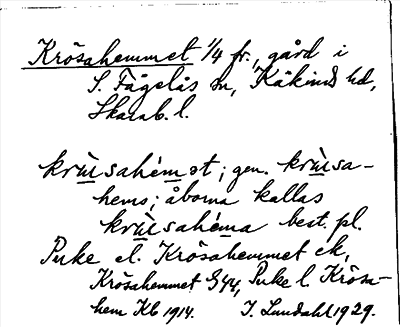 Krösahemmet 1/4 fr., gård i
S. Fågelås sn, Kåkinds hd,
Skarab. l.
krùrsahémət; gen. krùrsa-
hems; åborna kallas
krùrsahéma best. pl.
Puke el. Krösahemmet ek,
Krösahemmet G44, Puke l. Krösa-
hem Kb 1914. I. Lundahl 1929.